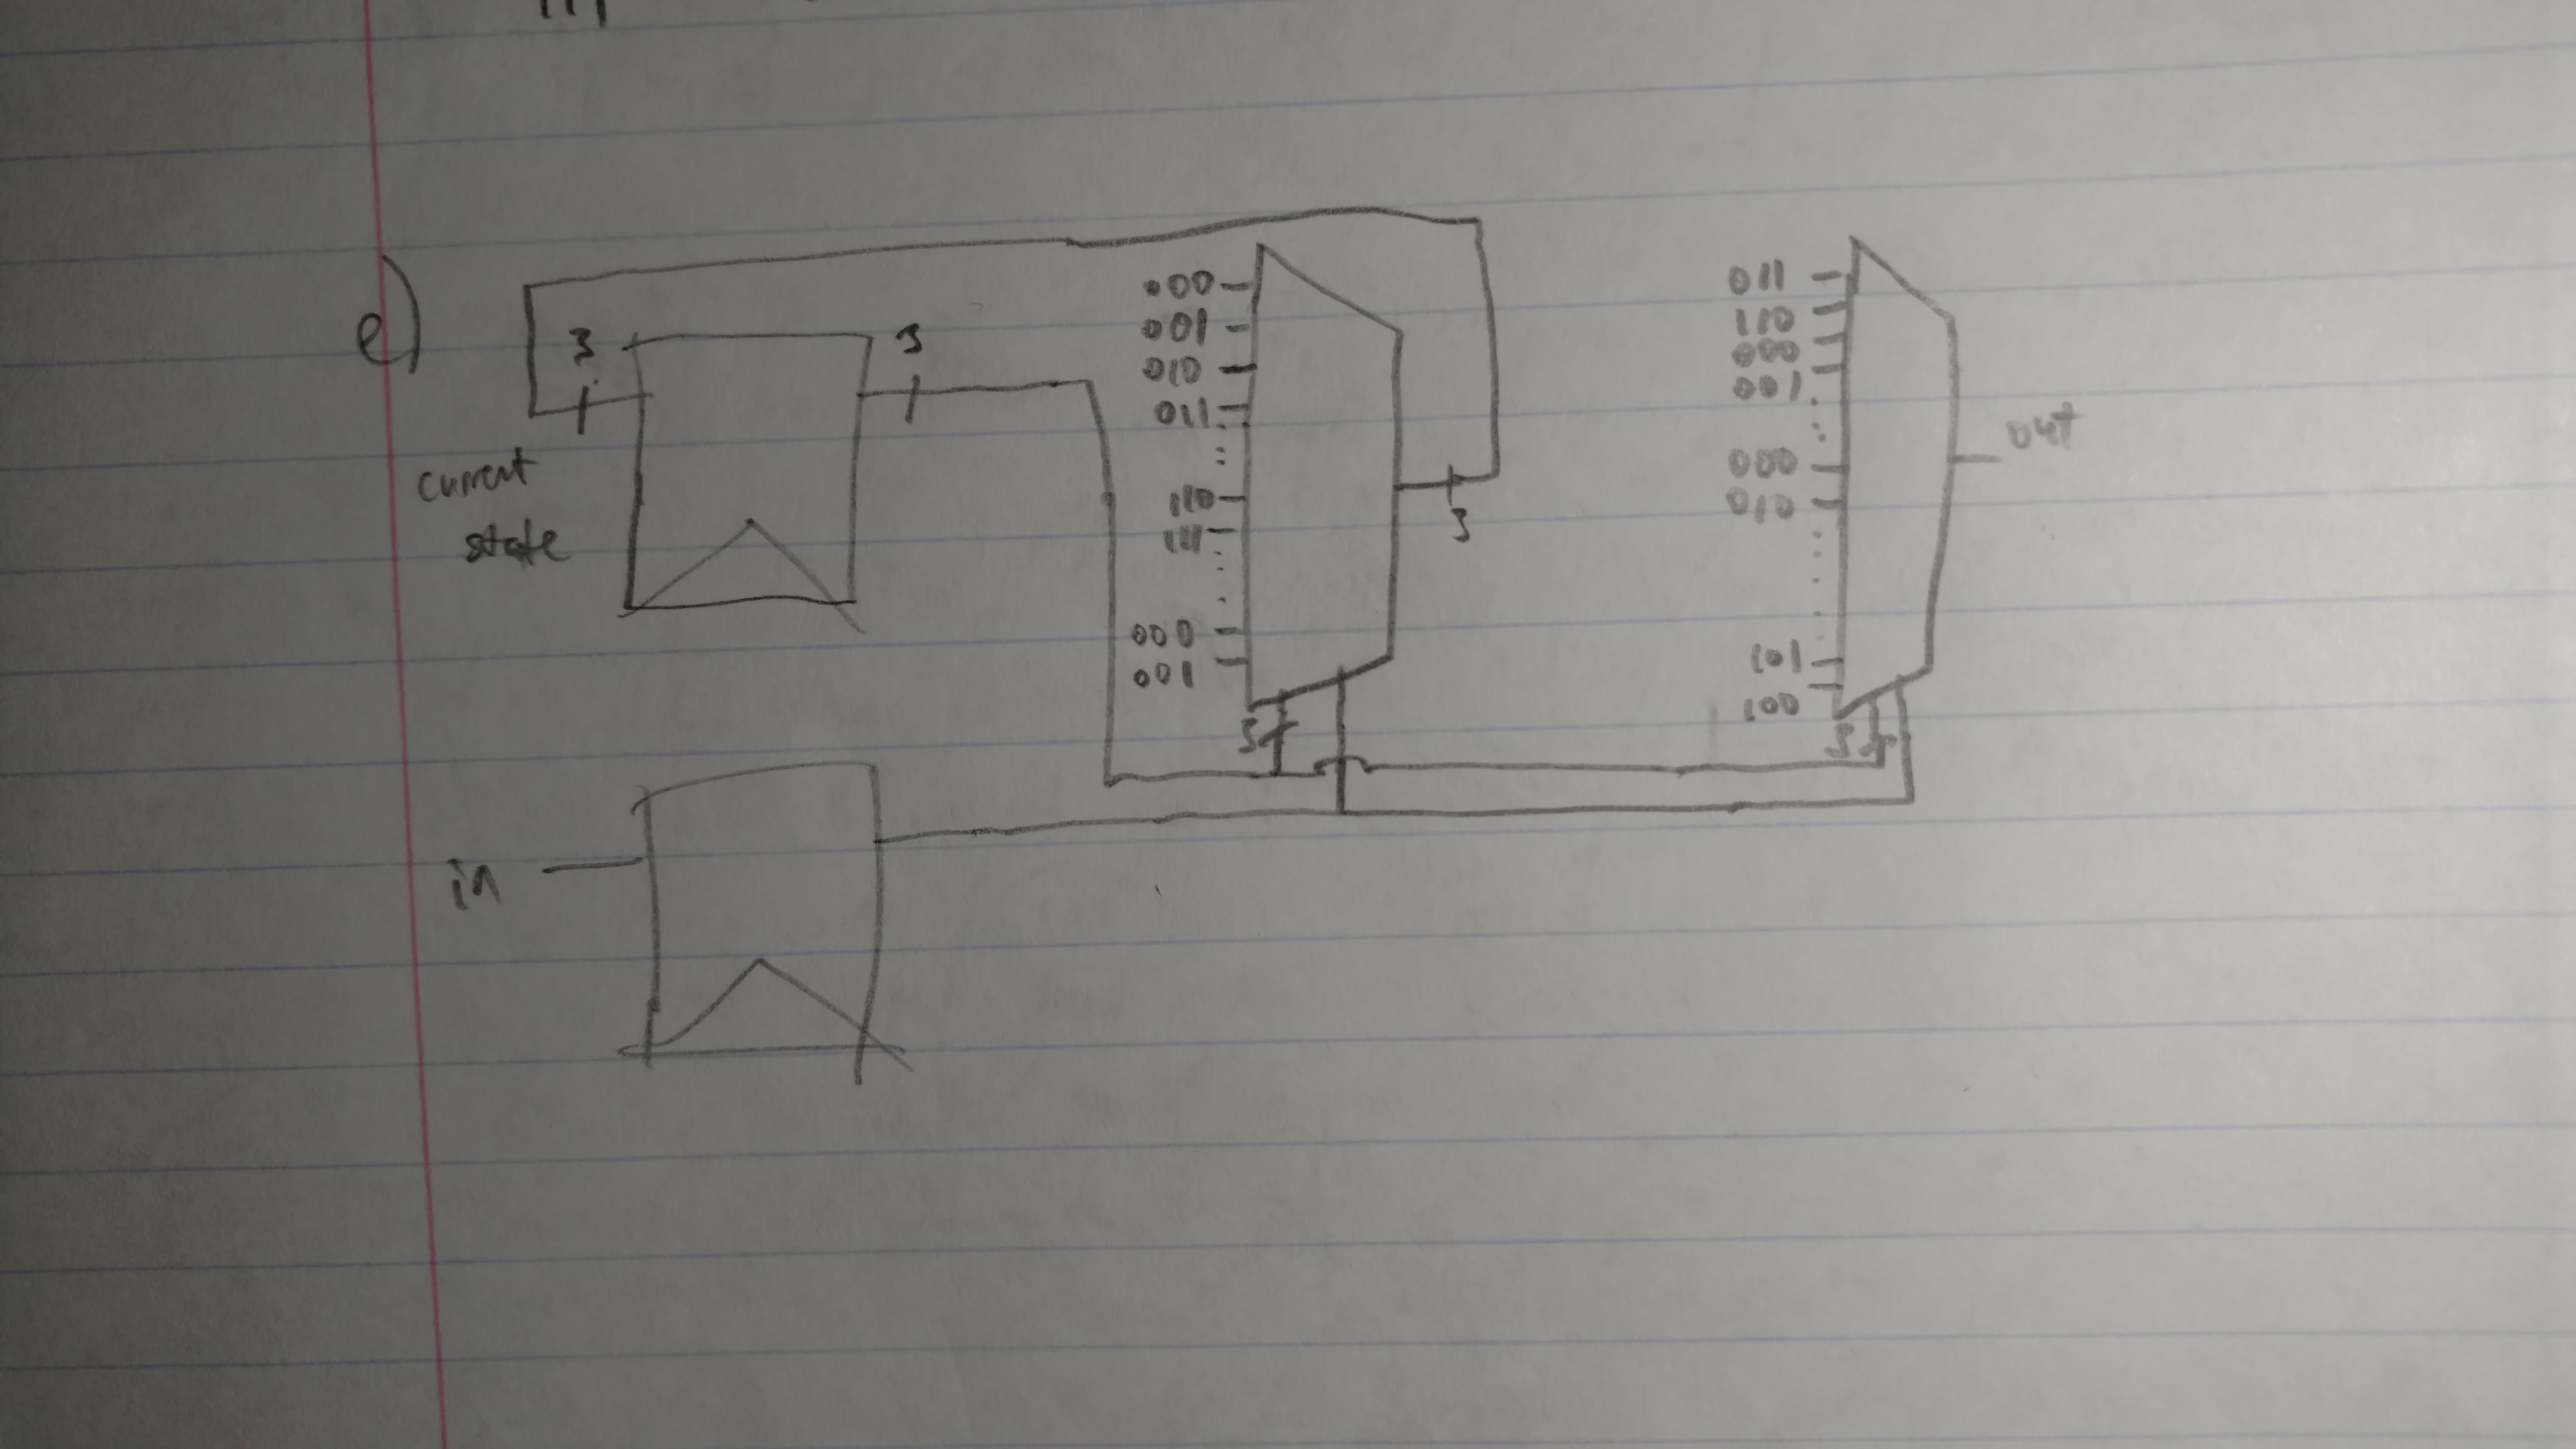 e)
3
3
current
state
in
000
001
010
011
110
111
000
001
3
3
011
110
000
001
000
010
101
100
3
out